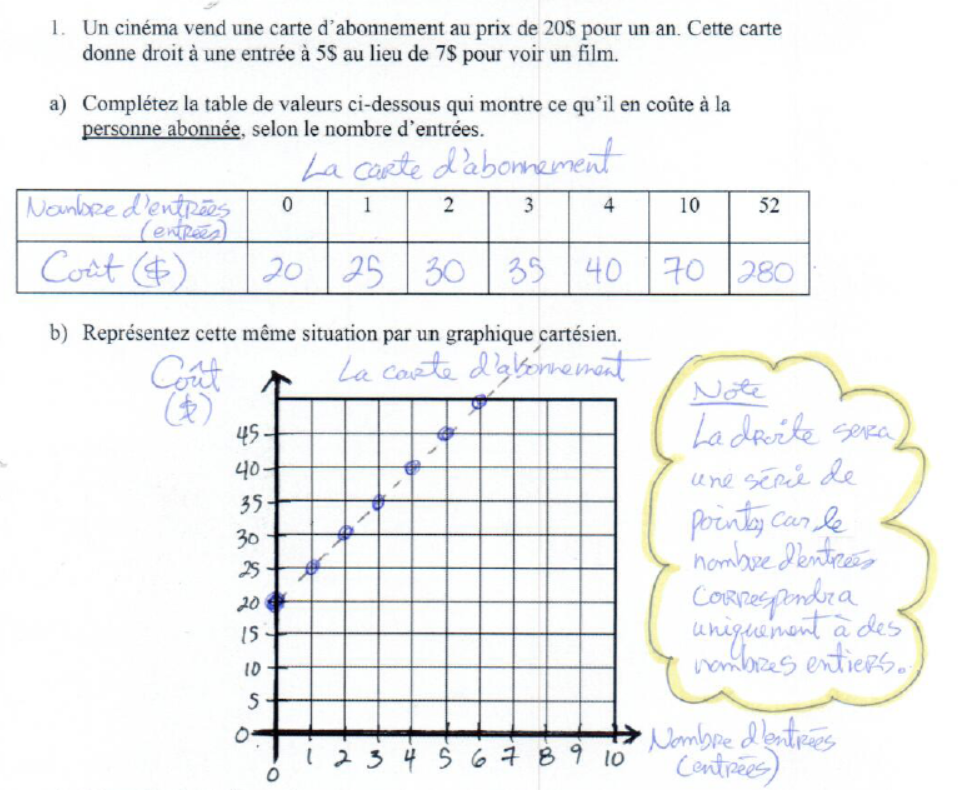 1. Un cinéma vend une carte d'abonnement au prix de 20$ pour un an. Cette carte
donne droit à une entrée à 5$ au lieu de 7$ pour voir un film.
a) Complétez la table de valeurs ci-dessous qui montre ce qu'il en coûte à la
personne abonnée, selon le nombre d'entrées.
La carte d'abonnement
Nombre d'entrées 0 1 2 3 4 10 52
(entrées)
Coût ($) 20 25 30 35 40 70 280
b) Représentez cette même situation par un graphique cartésien.
Coût
($)
La carte d'abonnement
45
40
35
30
25
20
15
10
5
0
0 1 2 3 4 5 6 7 8 9 10
Nombre d'entrées
(entrées)
Note
La droite sera
une série de
points, car le
nombre d'entrées
correspondra
uniquement à des
nombres entiers.